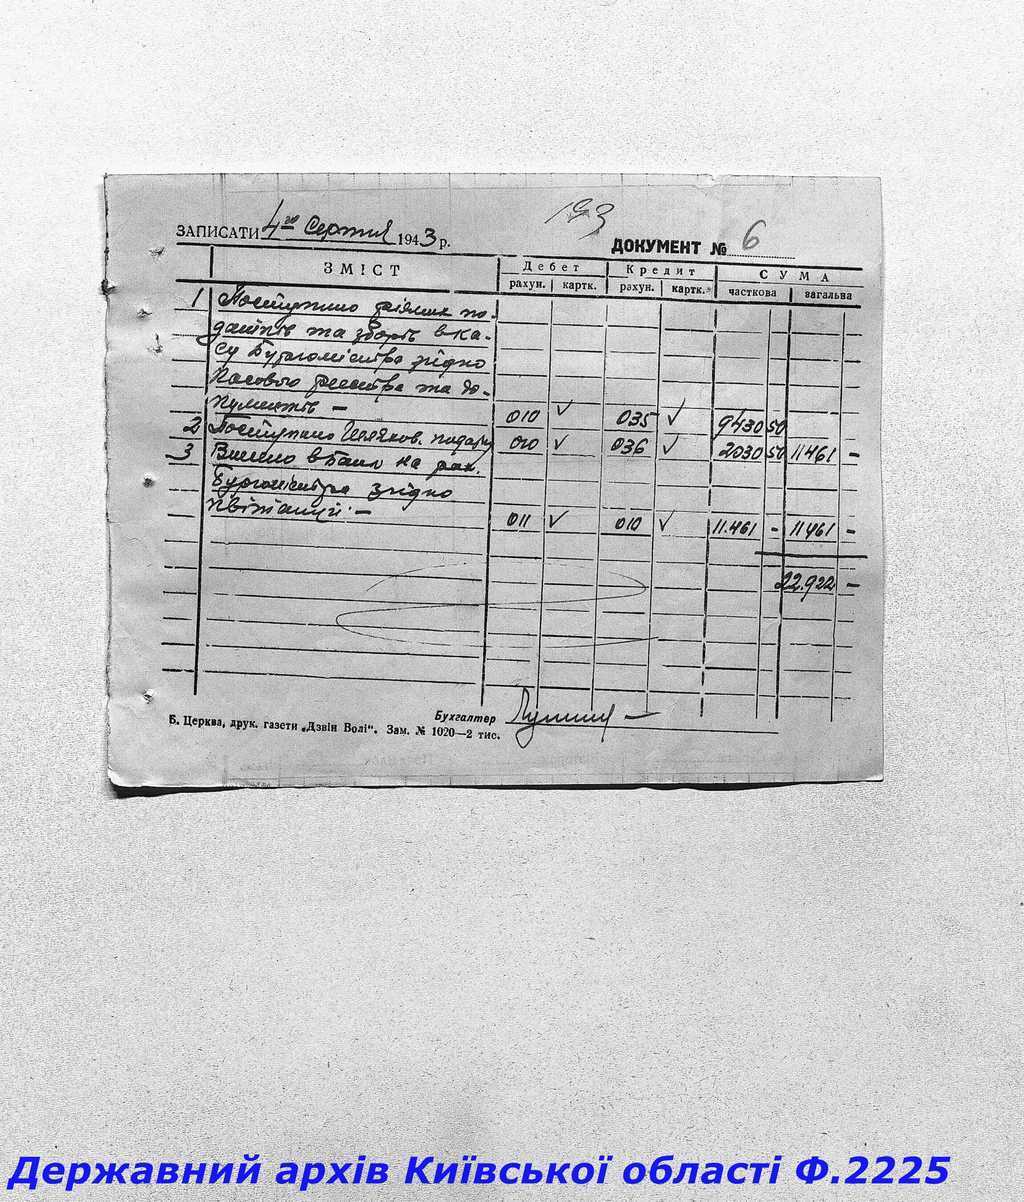 193
ЗАПИСАТИ 4го Серпня 1943 р.
ДОКУМЕНТ № 6
ЗМІСТ Дебет Кредит СУМА
рахун. картк. рахун. картк. часткова загальва
1 Поступило різних по-
датків та зборів в ка-
су Бургомістра згідно
касового реєстра та до-
кументів — 010 ✓ 035 ✓ 9430 50
2 Поступило Шляхов. податку 010 ✓ 036 ✓ 2030 50 11461 —
3 в Банк на рах.
Бургомістра згідно
квітанції — 011 ✓ 010 ✓ 11.461 - 11461 —
22.922 —
Бухгалтер
Б. Церква, друк. газети „Дзвін Волі". Зам. № 1020—2 тис.
Державний архів Київської області Ф.2225